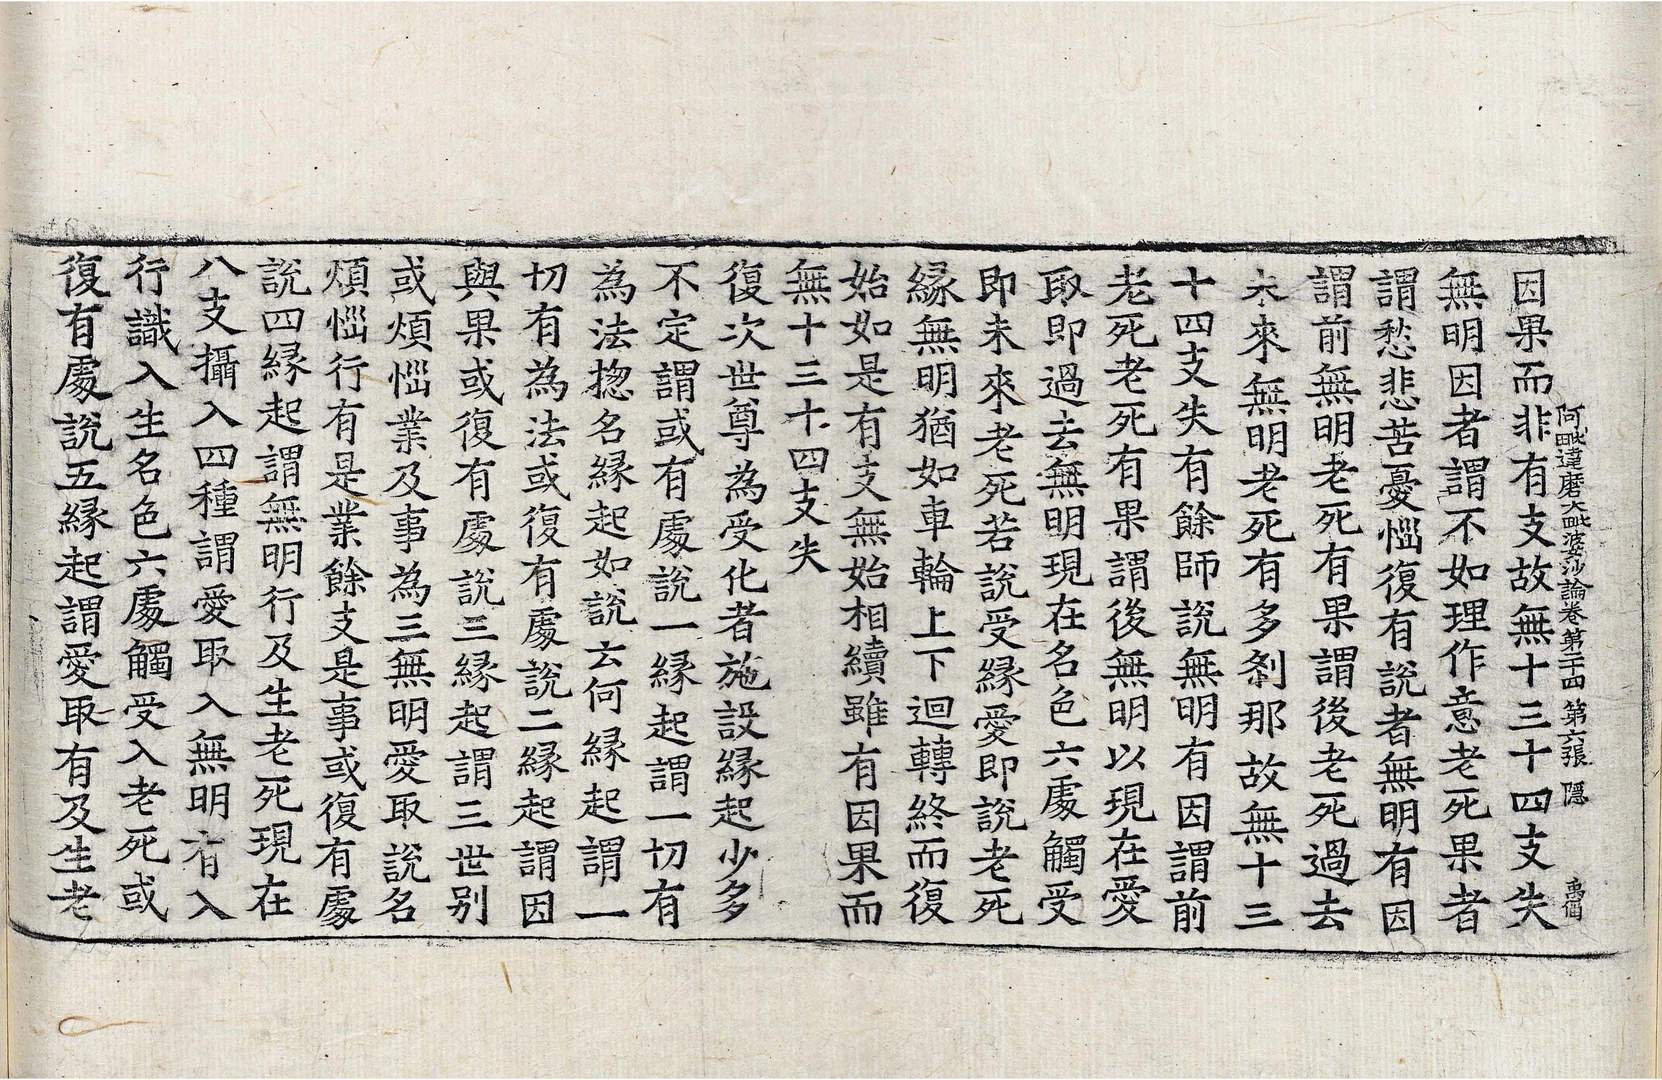 阿毗達磨大毗婆沙論卷第二十四 第六張 隱
因果而非有支故無十三十四支失
無明因者謂不如理作意老死果者
謂愁悲苦憂惱復有說者無明有因
謂前無明老死有果謂後老死過去
未來無明老死有多剎那故無十三
十四支失有餘師說無明有因謂前
老死老死有果謂後無明以現在愛
取即過去無明現在名色六處觸受
即未來老死若說受緣愛即說老死
緣無明猶如車輪上下迴轉終而復
始如是有支無始相續雖有因果而
無十三十四支失
復次世尊為受化者施設緣起少多
不定謂或有處說一緣起謂一切有
為法揔名緣起如說云何緣起謂一
切有為法或復有處說二緣起謂因
與果或復有處說三緣起謂三世別
或煩惱業及事為三無明愛取說名
煩惱行有是業餘支是事或復有處
說四緣起謂無明行及生老死現在
八支攝入四種謂愛取入無明有入
行識入生名色六處觸受入老死或
復有處說五緣起謂愛取有及生老